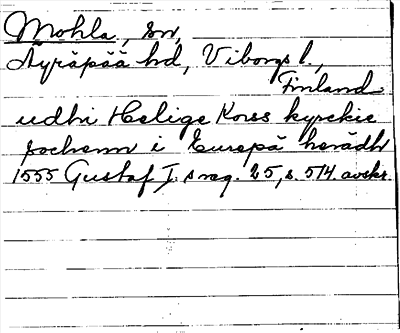 Mohla, sn,
Äyräpää hd, Viborgs l.,
Finland
udhi Helige Korss kyrckie
sochenn i Eurepä herädh
1555 Gustaf I.s reg. 25, s. 514. avskr.